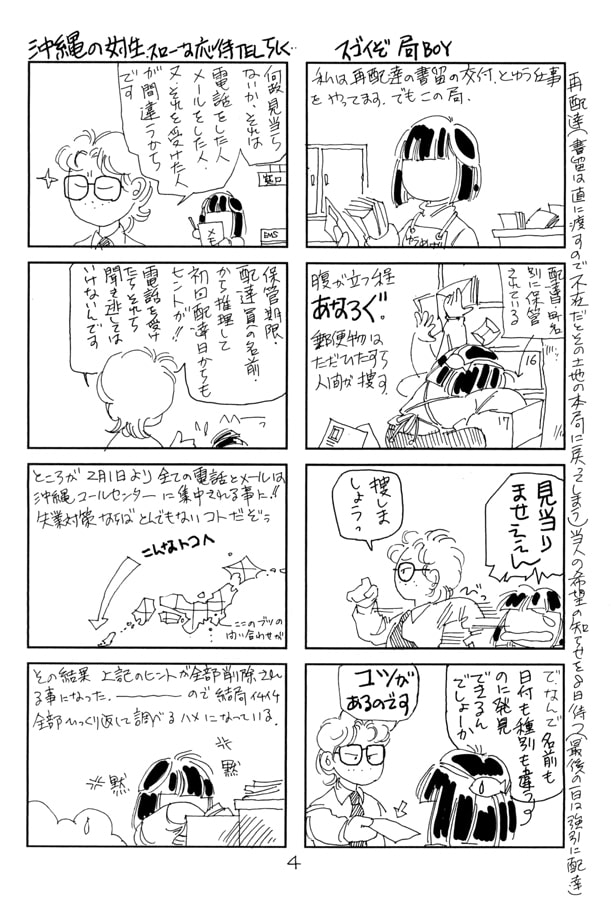 スゴイぞ 局BOY
私は、再配達の書留の交付、とゆう仕事
をやってます。でもこの局、
配達日・局名
別に保管
されている
腹が立つ程
あなろぐ。
郵便物は
ただひたすら
人間が捜す。
16
17
見当り
ませええん
捜しま
しょうっ
で、なんで名前も
日付も種別も違う
のに発見
できるん
でしょーか
コツが
あるのです
再配達(書留は直に渡すので不在だとその土地の本局に戻ってしまう)当人の希望の知らせを8日待つ(最後の一日は強引に配達)
沖縄の女性、スローな応待TELしく…
何故見当ら
ないか、それは
電話をした人、
メールをした人、
又、それを受けた人
が間違うから
です
窓口
EMS
メモ
保管期限、
配達員の名前、
から推理して
初回配達日からも
ヒントが!!
電話を受け
たら、それらを
聞き逃しては
いけないんです
ところが 2月1日より 全ての電話とメールは
沖縄コールセンターに集中される事に!!
失業対策ならばとんでもないコトだぞっ
こんなトコへ
ここのブツの
問い合わせが
その結果 上記のヒントが全部削除され
る事になった。―――ので結局イチイチ
全部ひっくり返して調べるハメになっている。
黙
黙
4